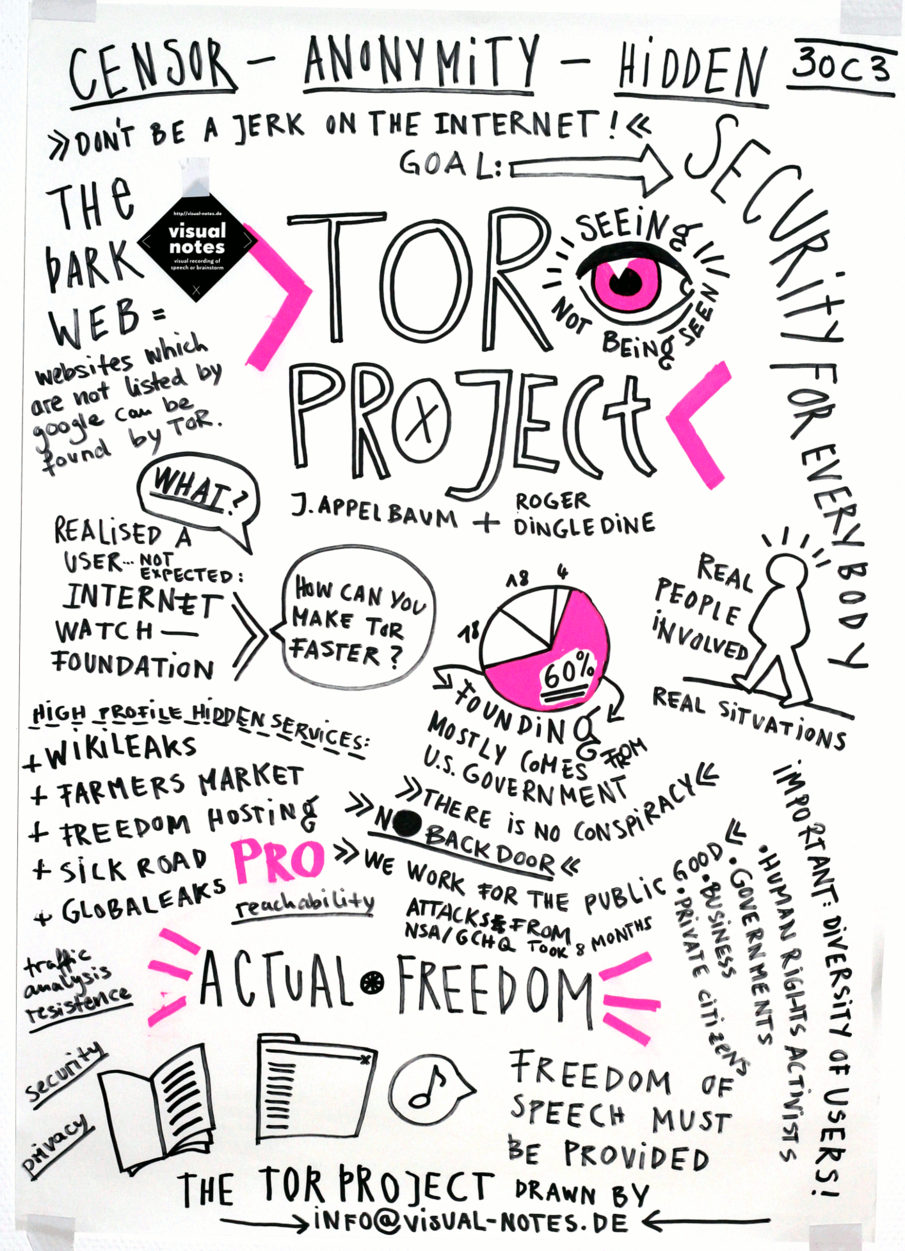 CENSOR – ANONYMITY – HIDDEN
30C3
»DON'T BE A JERK ON THE INTERNET!«
GOAL:
SECURITY FOR EVERYBODY
THE
DARK
WEB =
websites which
are not listed by
google can be
found by TOR.
http://visual-notes.de
visual
notes
visual recording of
speech or brainstorm
TOR
PROJECT
SEEING
NOT BEING SEEN
J. APPELBAUM + ROGER
DINGLEDINE
WHAT?
REALISED A
USER... NOT
EXPECTED:
INTERNET
WATCH —
FOUNDATION
HOW CAN YOU
MAKE TOR
FASTER?
18
18
4
60%
FOUNDING
MOSTLY COMES FROM
U.S. GOVERNMENT
REAL
PEOPLE
INVOLVED
REAL SITUATIONS
HIGH PROFILE HIDDEN SERVICES:
+ WIKILEAKS
+ FARMERS MARKET
+ FREEDOM HOSTING
+ SILK ROAD
+ GLOBALEAKS
PRO
reachability
»THERE IS NO CONSPIRACY«
»NO BACKDOOR«
»WE WORK FOR THE PUBLIC GOOD«
ATTACKS FROM
NSA/GCHQ TOOK 8 MONTHS
IMPORTANT: DIVERSITY OF USERS!
• HUMAN RIGHTS ACTIVISTS
• GOVERNMENTS
• BUSINESS
• PRIVATE CITIZENS
traffic
analysis
resistence
security
privacy
ACTUAL • FREEDOM
FREEDOM OF
SPEECH MUST
BE PROVIDED
THE TOR PROJECT DRAWN BY
INFO@VISUAL-NOTES.DE